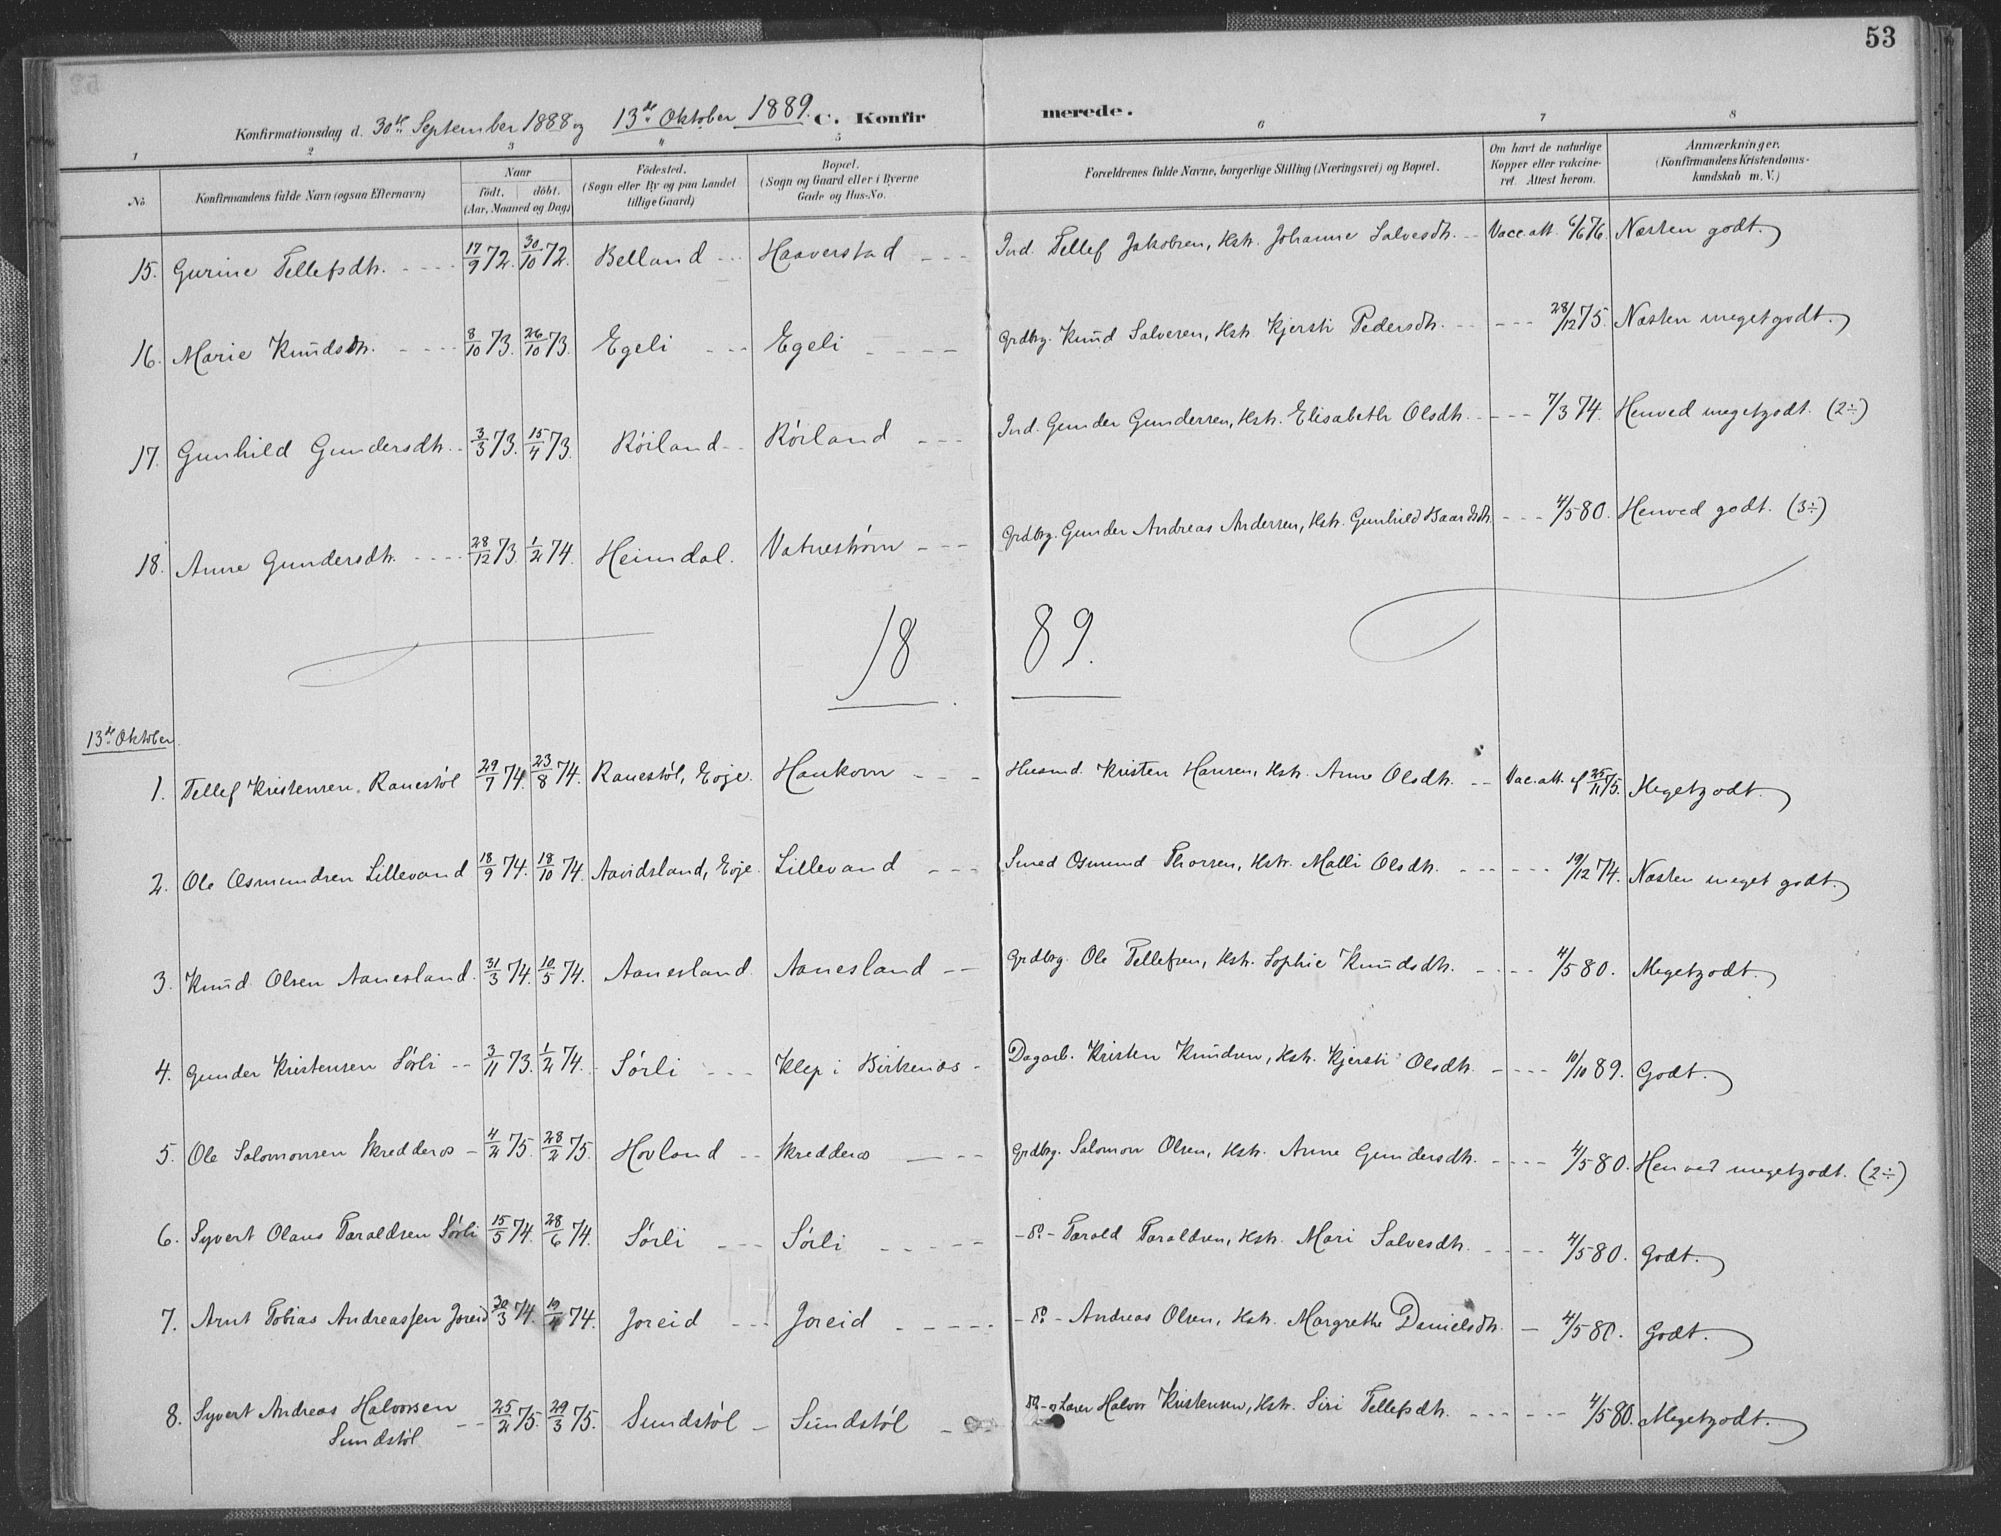 53
Konfirmationsdag d. 30te September 1888 og 13de Oktober 1889. C. Konfirmerede.
1 2 3 4 5 6 7 8
No Konfirmandens fulde Navn (ogsaa Efternavn) Naar födt. döbt. (Aar, Maaned og Dag) Födested. (Sogn eller By og paa Landet tillige Gaard) Bopæl. (Sogn og Gaard eller i Byerne Gade og Hus-No. Forældrenes fulde Navne, borgerlige Stilling (Næringsvei) og Bopæl. Om havt de naturlige Kopper eller vakcineret. Attest herom. Anmærkninger. (Konfirmandens Kristendomskundskab m. V.)
15. Gurine Tellefsdtr. 17/9 72. 30/10 72. Belland Haaverstad Ind. Tellef Jakobsen, Kstr. Johanne Salvesdtr. Vacc. att. 6/6 76. Næsten godt.
16. Marie Knudsdtr. 8/10 73. 26/10 73. Egeli Egeli Grdbrg. Knud Salvesen, Kstr. Kjersti Pedersdtr. 28/12 75. Næsten megetgodt.
17. Gunhild Gundersdtr. 3/3 73. 15/4 73. Röiland Röiland Ind. Gunder Gundersen, Kstr. Elisabeth Olsdtr. 7/3 74. Henved megetgodt. (2÷)
18. Anne Gundersdtr. 28/12 73. 1/2 74. Heimdal. Vatneström Grdbrg. Gunder Andreas Andersen, Kstr. Gunhild Baardsdtr. 4/5 80. Henved godt. (3÷)
18 89.
13de Oktober
1. Tellef Kristensen Ranestöl 29/7 74. 23/8 74. Ranestöl, Evje. Haukom Husmd. Kristen Hansen, Kstr. Anne Olsdtr. Vac. att. af 25/11 75. Megetgodt.
2. Ole Osmundsen Lillevand 18/9 74. 18/10 74. Aavidsland, Evje. Lillevand Smed Osmund Thorsen, Kstr. Malli Olsdtr. 19/12 74. Næsten meget godt.
3. Knud Olsen Aanesland. 31/3 74. 10/5 74. Aanesland Aanesland Grdbrg. Ole Tellefsen, Kstr. Sophie Knudsdtr. 4/5 80. Megetgodt.
4. Gunder Kristensen Sörli 3/11 73. 1/2 74. Sörli Klep i Birkenæs Dagarb. Kristen Knudsen, Kstr. Kjersti Olsdtr. 10/10 89. Godt.
5. Ole Salomonsen Skredderås 4/2 75. 28/2 75. Hovland Skredderås Grdbrg. Salomon Olsen, Kstr. Anne Gundersdtr. 4/5 80. Henved megetgodt. (2÷)
6. Syvert Olaus Taraldsen Sörli 15/5 74. 28/6 74. Sörli Sörli - Do - Tarald Taraldsen, Kstr. Mari Salvesdtr. 4/5 80. Godt.
7. Arnt Tobias Andreassen Joreid 30/3 74. 19/4 74. Joreid Joreid - Do - Andreas Olsen, Kstr. Margrethe Danielsdtr. 4/5 80. Godt.
8. Syvert Andreas Halvorsen 25/2 75. 29/3 75. Sundstöl Sundstöl Do - og Lærer Halvor Kristensen, Kstr. Siri Tellefsdtr. 4/5 80. Megetgodt.
Sundstöl